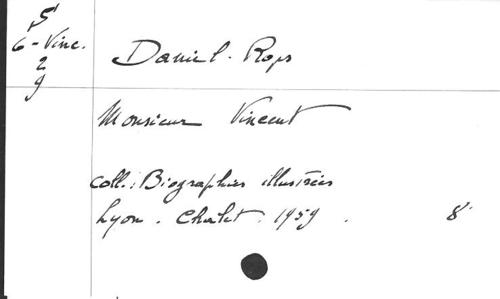 S
6-Vinc.
2
9
Daniel-Rops
Monsieur Vincent
coll.: Biographies illustrées
Lyon. Chalet. 1959. 8°